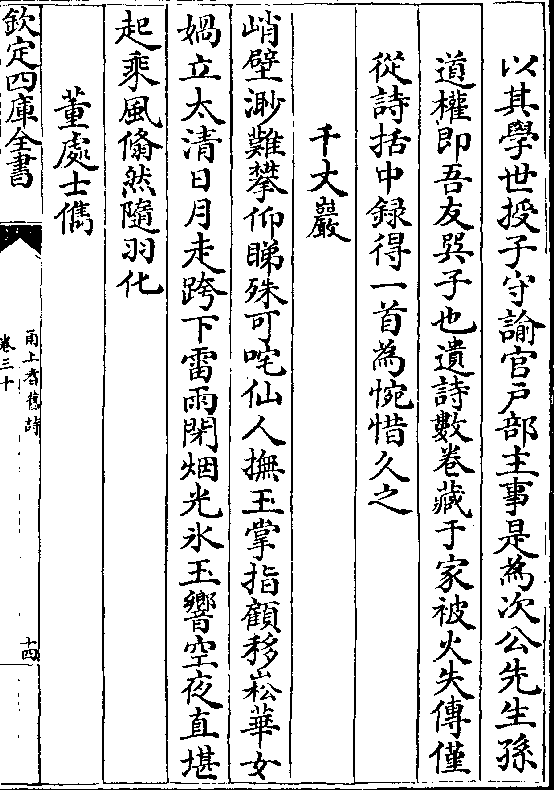 以其學世授子守諭官戸部主事是為次公先生孫
道權即吾友巽子也遺詩數卷藏于家被火失傳僅
從詩括中録得一首為惋惜久之
千丈巖
峭壁渺難攀仰睇殊可咤仙人撫玉掌指顧移崧華女
媧立太清日月走跨下雷雨閉烟光氷玉響空夜直堪
起乘風翛然隨羽化
董處士儁
欽定四庫全書
甬上耆舊詩
卷三十
十四